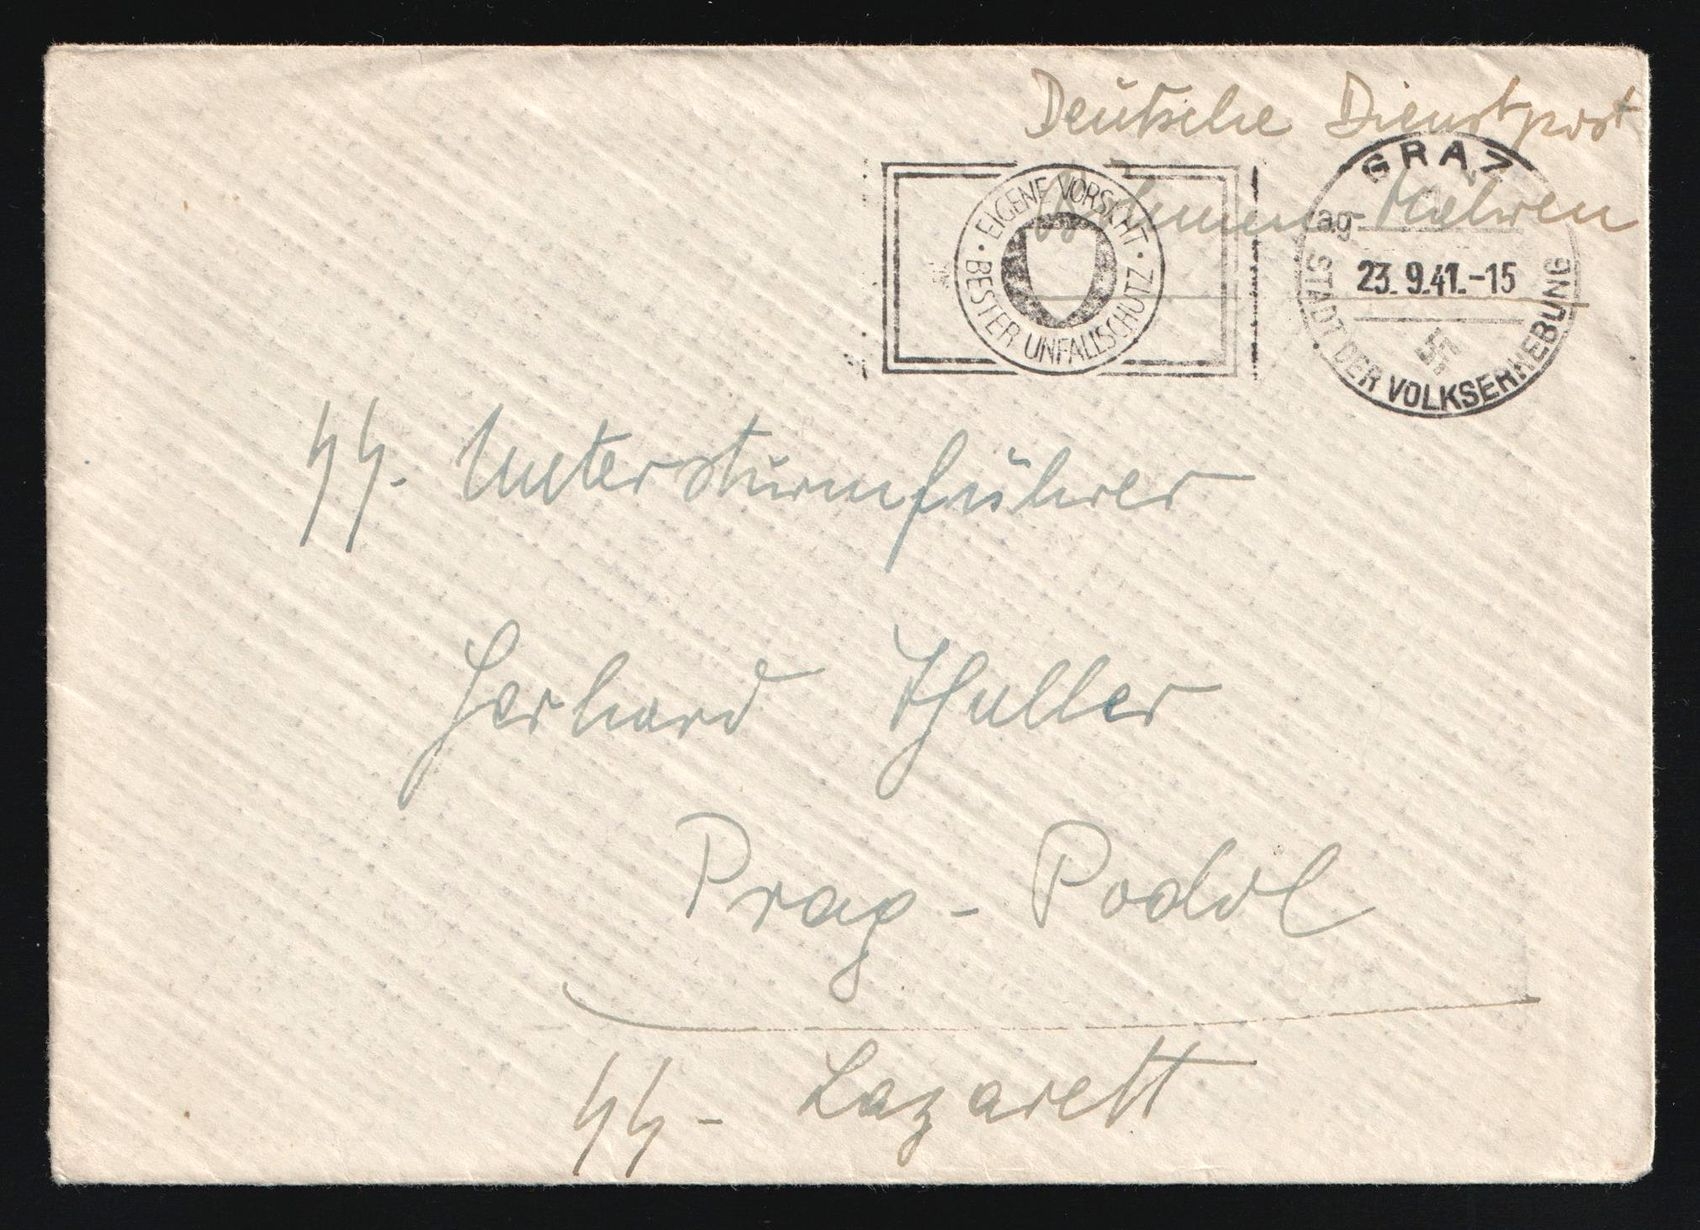 Deutsche Dienstpost
Böhmen-Mähren
EIGENE VORSICHT · BESTER UNFALLSCHUTZ ·
GRAZ
ag
23.9.41.-15
STADT DER VOLKSERHEBUNG
SS. Untersturmführer
Gerhard Thaller
Prag - Podol
SS - Lazarett